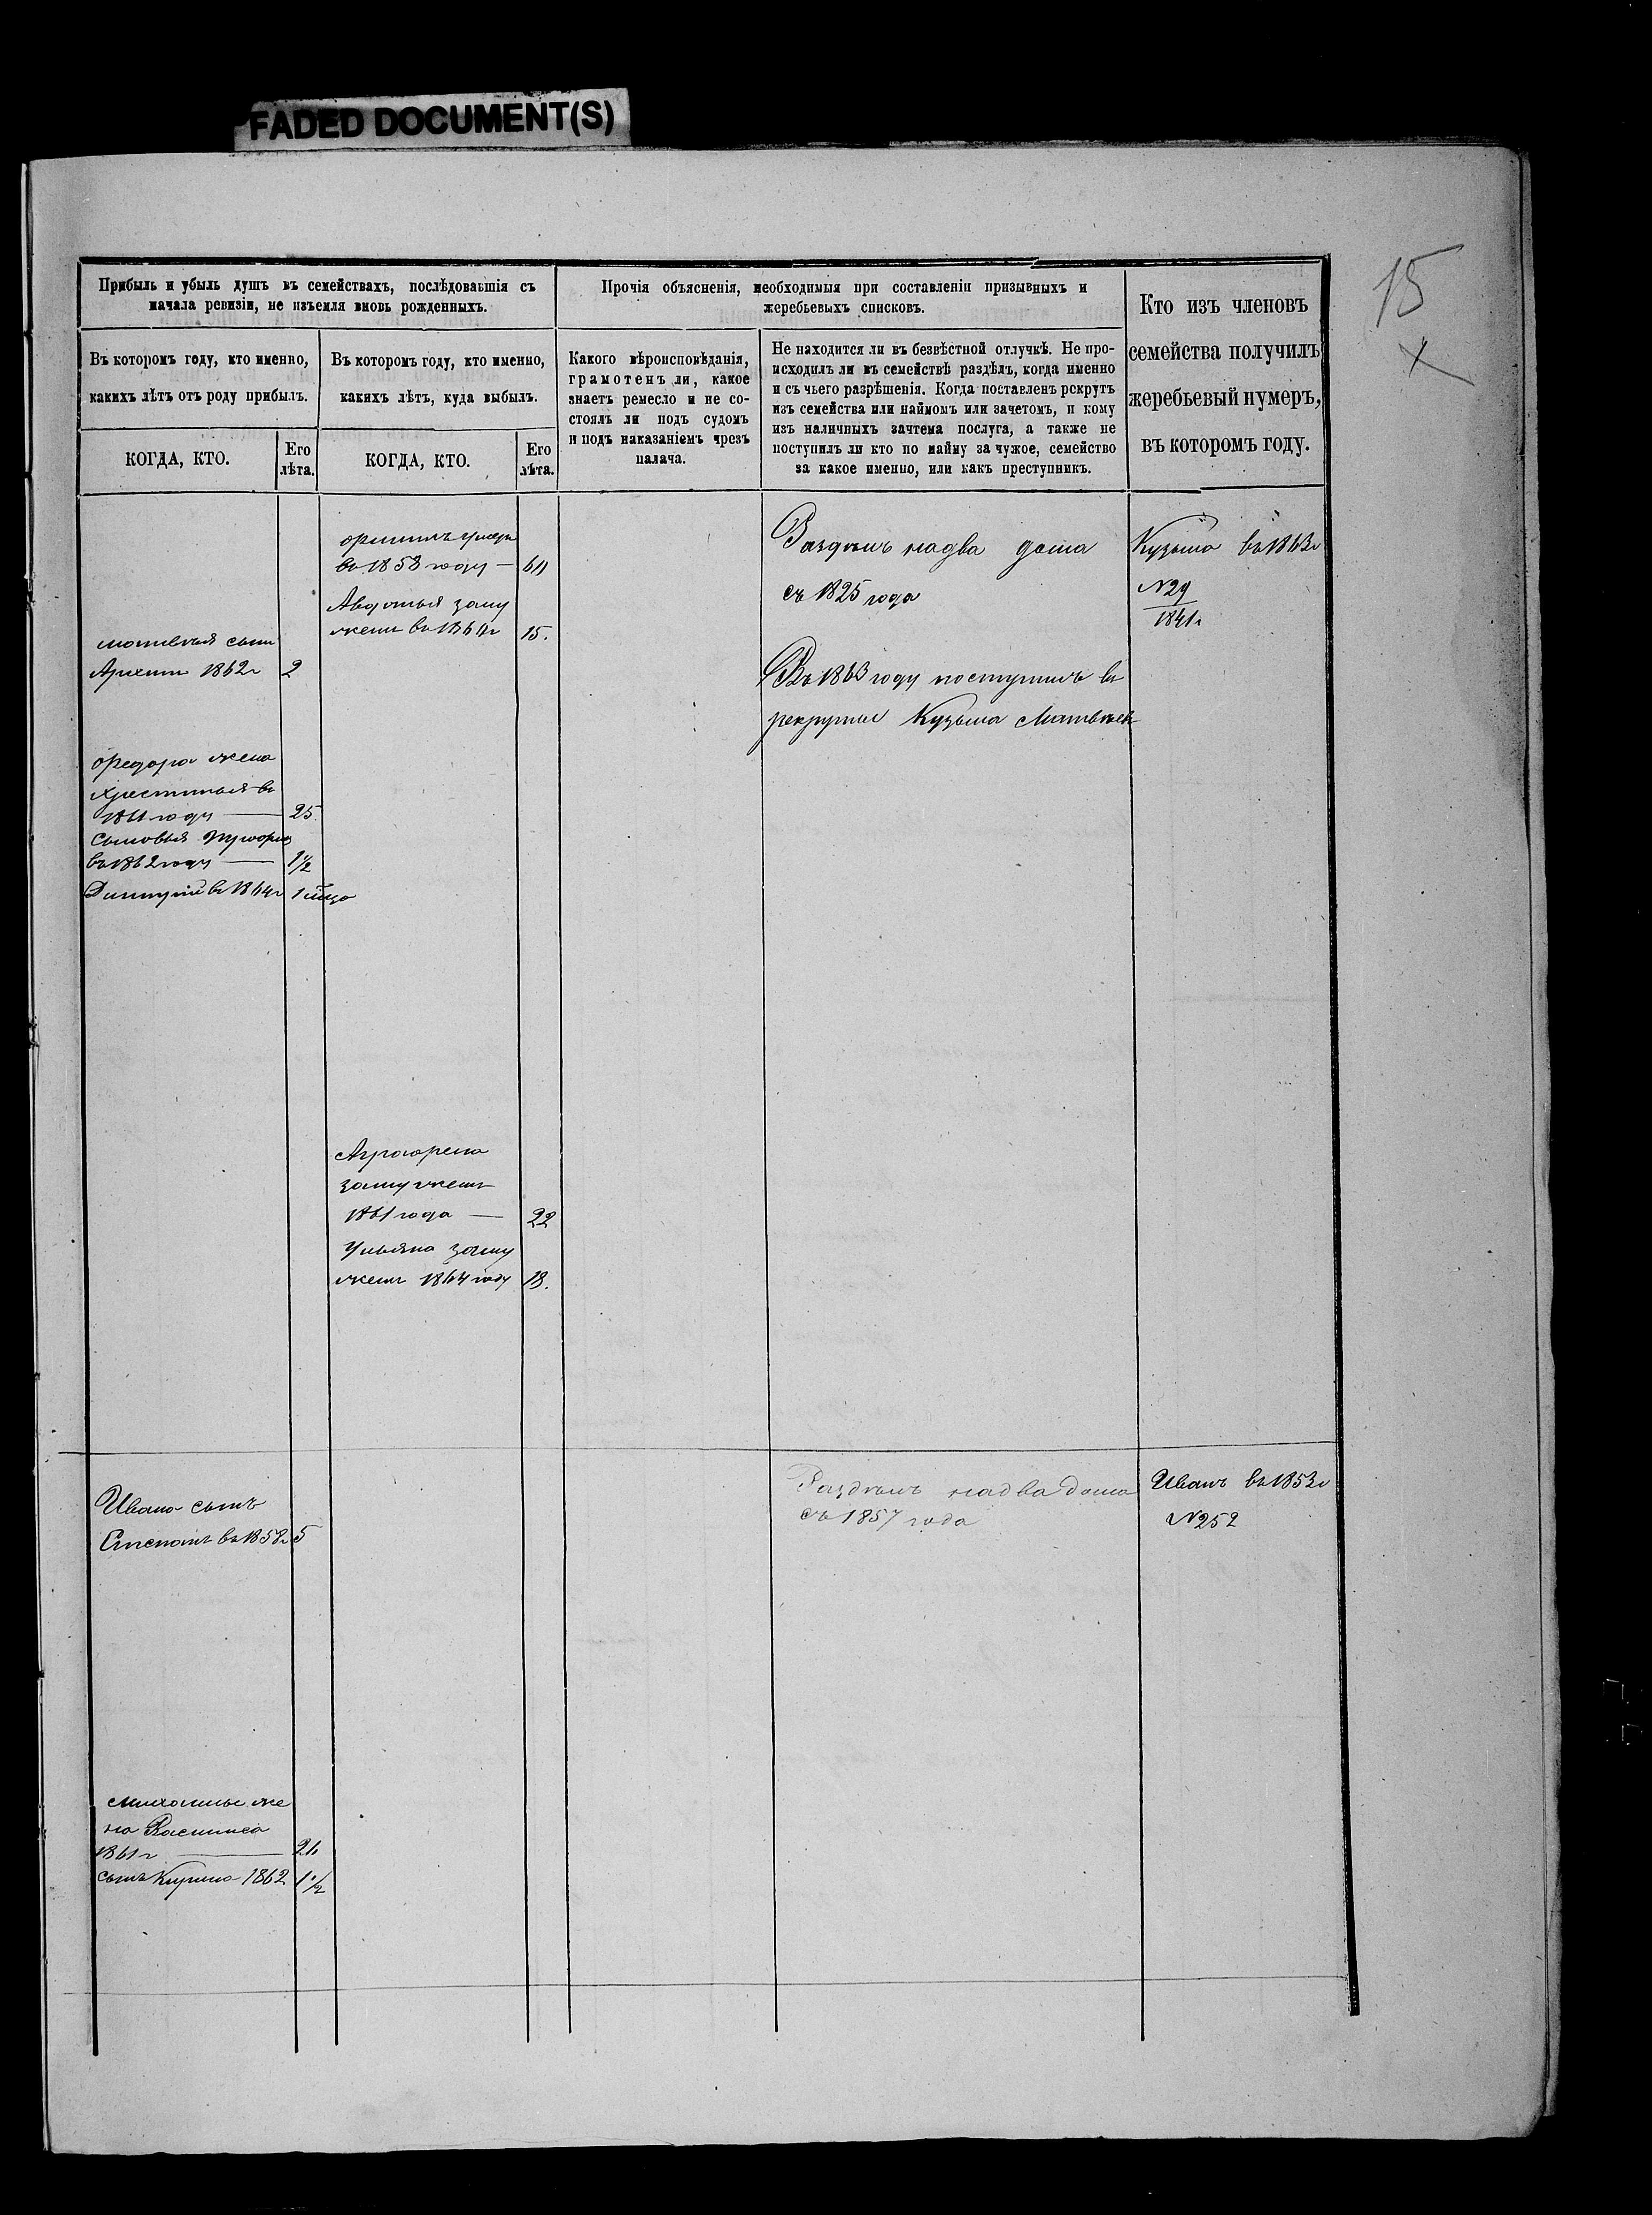 FADED DOCUMENT(S)
15
Прибыль и убыль душъ въ семействахъ, послѣдовавшія съ
начала ревизіи, не изъемля вновь рожденныхъ.
Въ которомъ году, кто именно,
какихъ лѣтъ отъ роду прибылъ.
КОГДА, КТО.
Его
лѣта.
Въ которомъ году, кто именно,
какихъ лѣтъ, куда выбылъ.
КОГДА, КТО.
Его
лѣта.
Прочія объясненія, необходимыя при составленіи призывныхъ и
жеребьевыхъ списковъ.
Какого вѣроисповѣданія,
грамотенъ ли, какое
знаетъ ремесло и не со-
стоялъ ли подъ судомъ
и подъ наказаніемъ чрезъ
палача.
Не находится ли въ безвѣстной отлучкѣ. Не про-
исходилъ ли въ семействѣ раздѣлъ, когда именно
и съ чьего разрѣшенія. Когда поставленъ рекрутъ
изъ семейства или наймомъ или зачетомъ, и кому
изъ наличныхъ зачтена послуга, а также не
поступилъ ли кто по найму за чужое, семейство
за какое именно, или какъ преступникъ.
Кто изъ членовъ
семейства получилъ
жеребьевый нумеръ,
въ которомъ году.
въ 1858 году —
Авдотья заму
жемъ въ 1864г 15.
матвѣя сынъ
Архипъ 1862г 2
Раздѣлъ надва дома
съ 1825 года
Въ 1863 году поступилъ въ
рекруты Кузьма Матвѣевъ
Кузьма въ 1863г
N29
1841г
федора жена
Христинья въ
1861 году — 25.
Сыновья
въ 1862 году — 1 1/2
Дмитрій въ 1864г 1
Аграфена
замужемъ
1861 года — 22
Ульяна заму
жемъ 1864 году 18.
Ивана сынъ
Степанъ въ 1858г 5
Раздѣлъ надва дома
съ 1857 года
Иванъ въ 1853г
N252
михайлы же
на Василиса
1861г —
сынъ Кирила 1862 1 1/2